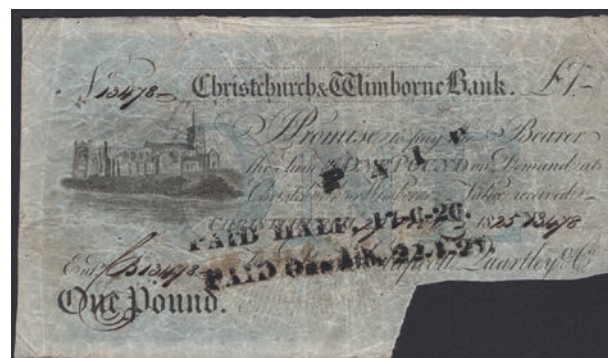 No 13478 Christchurch & Wimborne Bank. £1
I Promise to pay the Bearer
the Sum of ONE POUND on Demand at
Christchurch or Wimborne Value received
PAID
CHRISTCHURCH 1825 13478
PAID HALF. 17-6-26.
PAID
Entd 13478 Quartley & Co
One Pound.